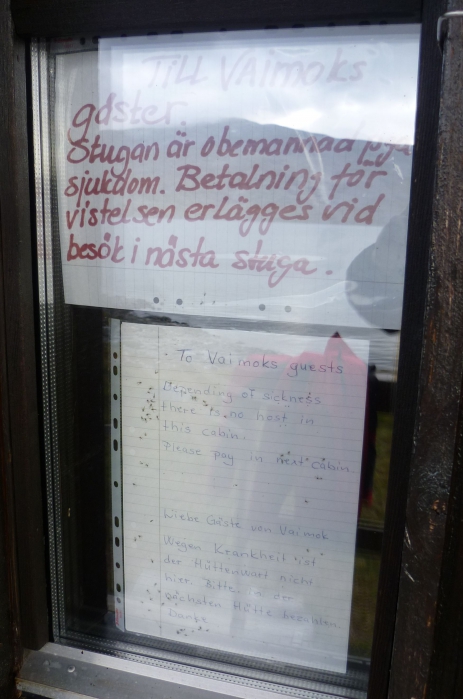 TILL VAIMOKS
gäster.
Stugan är obemannad pga
sjukdom. Betalning för
vistelsen erlägges vid
besök i nästa stuga.
To Vaimoks guests
Depending of sickness
there is no host in
this cabin.
Please pay in next cabin
Liebe Gäste von Vaimok
Wegen Krankheit ist
der Hüttenwart nicht
hier. Bitte in der
nächsten Hütte bezahlen.
Danke